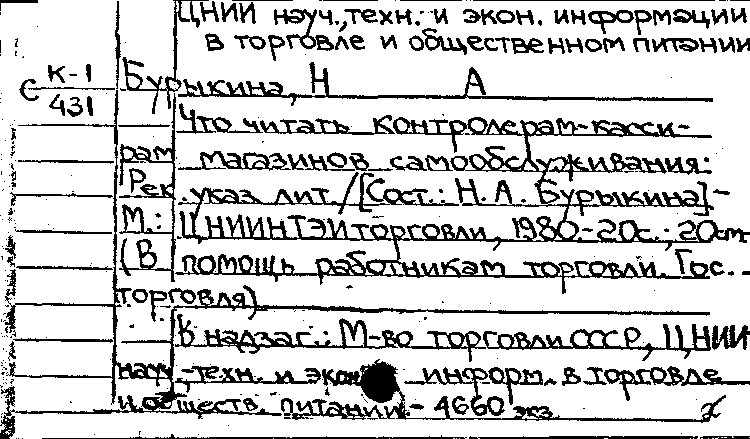 ЦНИИ науч., техн. и экон. информации
в торговле и общественном питании
С К-1
431
Бурыкина, Н А
Что читать контролерам-касси-
рам магазинов самообслуживания:
Рек. указ. лит. / [Сост.: Н. А. Бурыкина]. -
М.: ЦНИИНТЭИторговли, 1980.-20с.; 20см
(В помощь работникам торговли. Гос.
торговля)
В надзаг.: М-во торговли СССР, ЦНИИ
науч., техн. и экон. информ. в торговле
и обществ. питании. - 4660 экз.